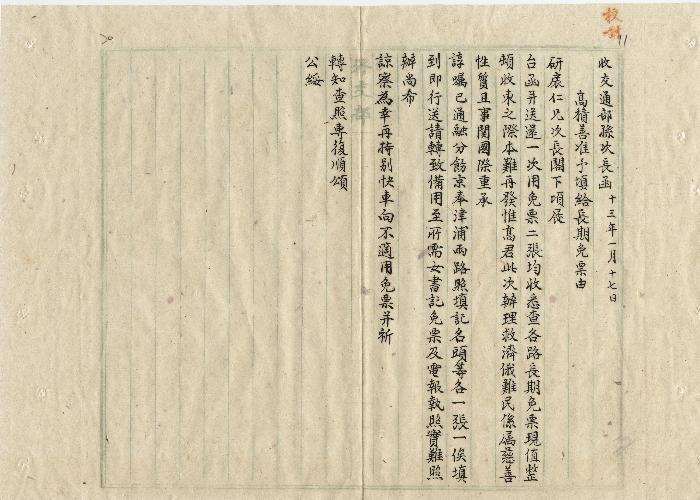 校對
收交通部孫次長函 十三年一月十七日
高積善准予填給長期免票由
研展仁兄次長閣下頃展
台函并送還一次用免票二張均收悉查各路長期免票現值整
頓收束之際本難再發惟高君此次辦理救濟俄難民係屬慈善
性質且事関國際重承
諄囑已通融分飭京奉津浦兩路照填記名頭等各一張一俟填
到即行送請轉致備用至所需女書記免票及電報執照實難照
辦尚希
諒察為幸再特别快車向不適用免票并祈
轉知查照專復順頌
公綏